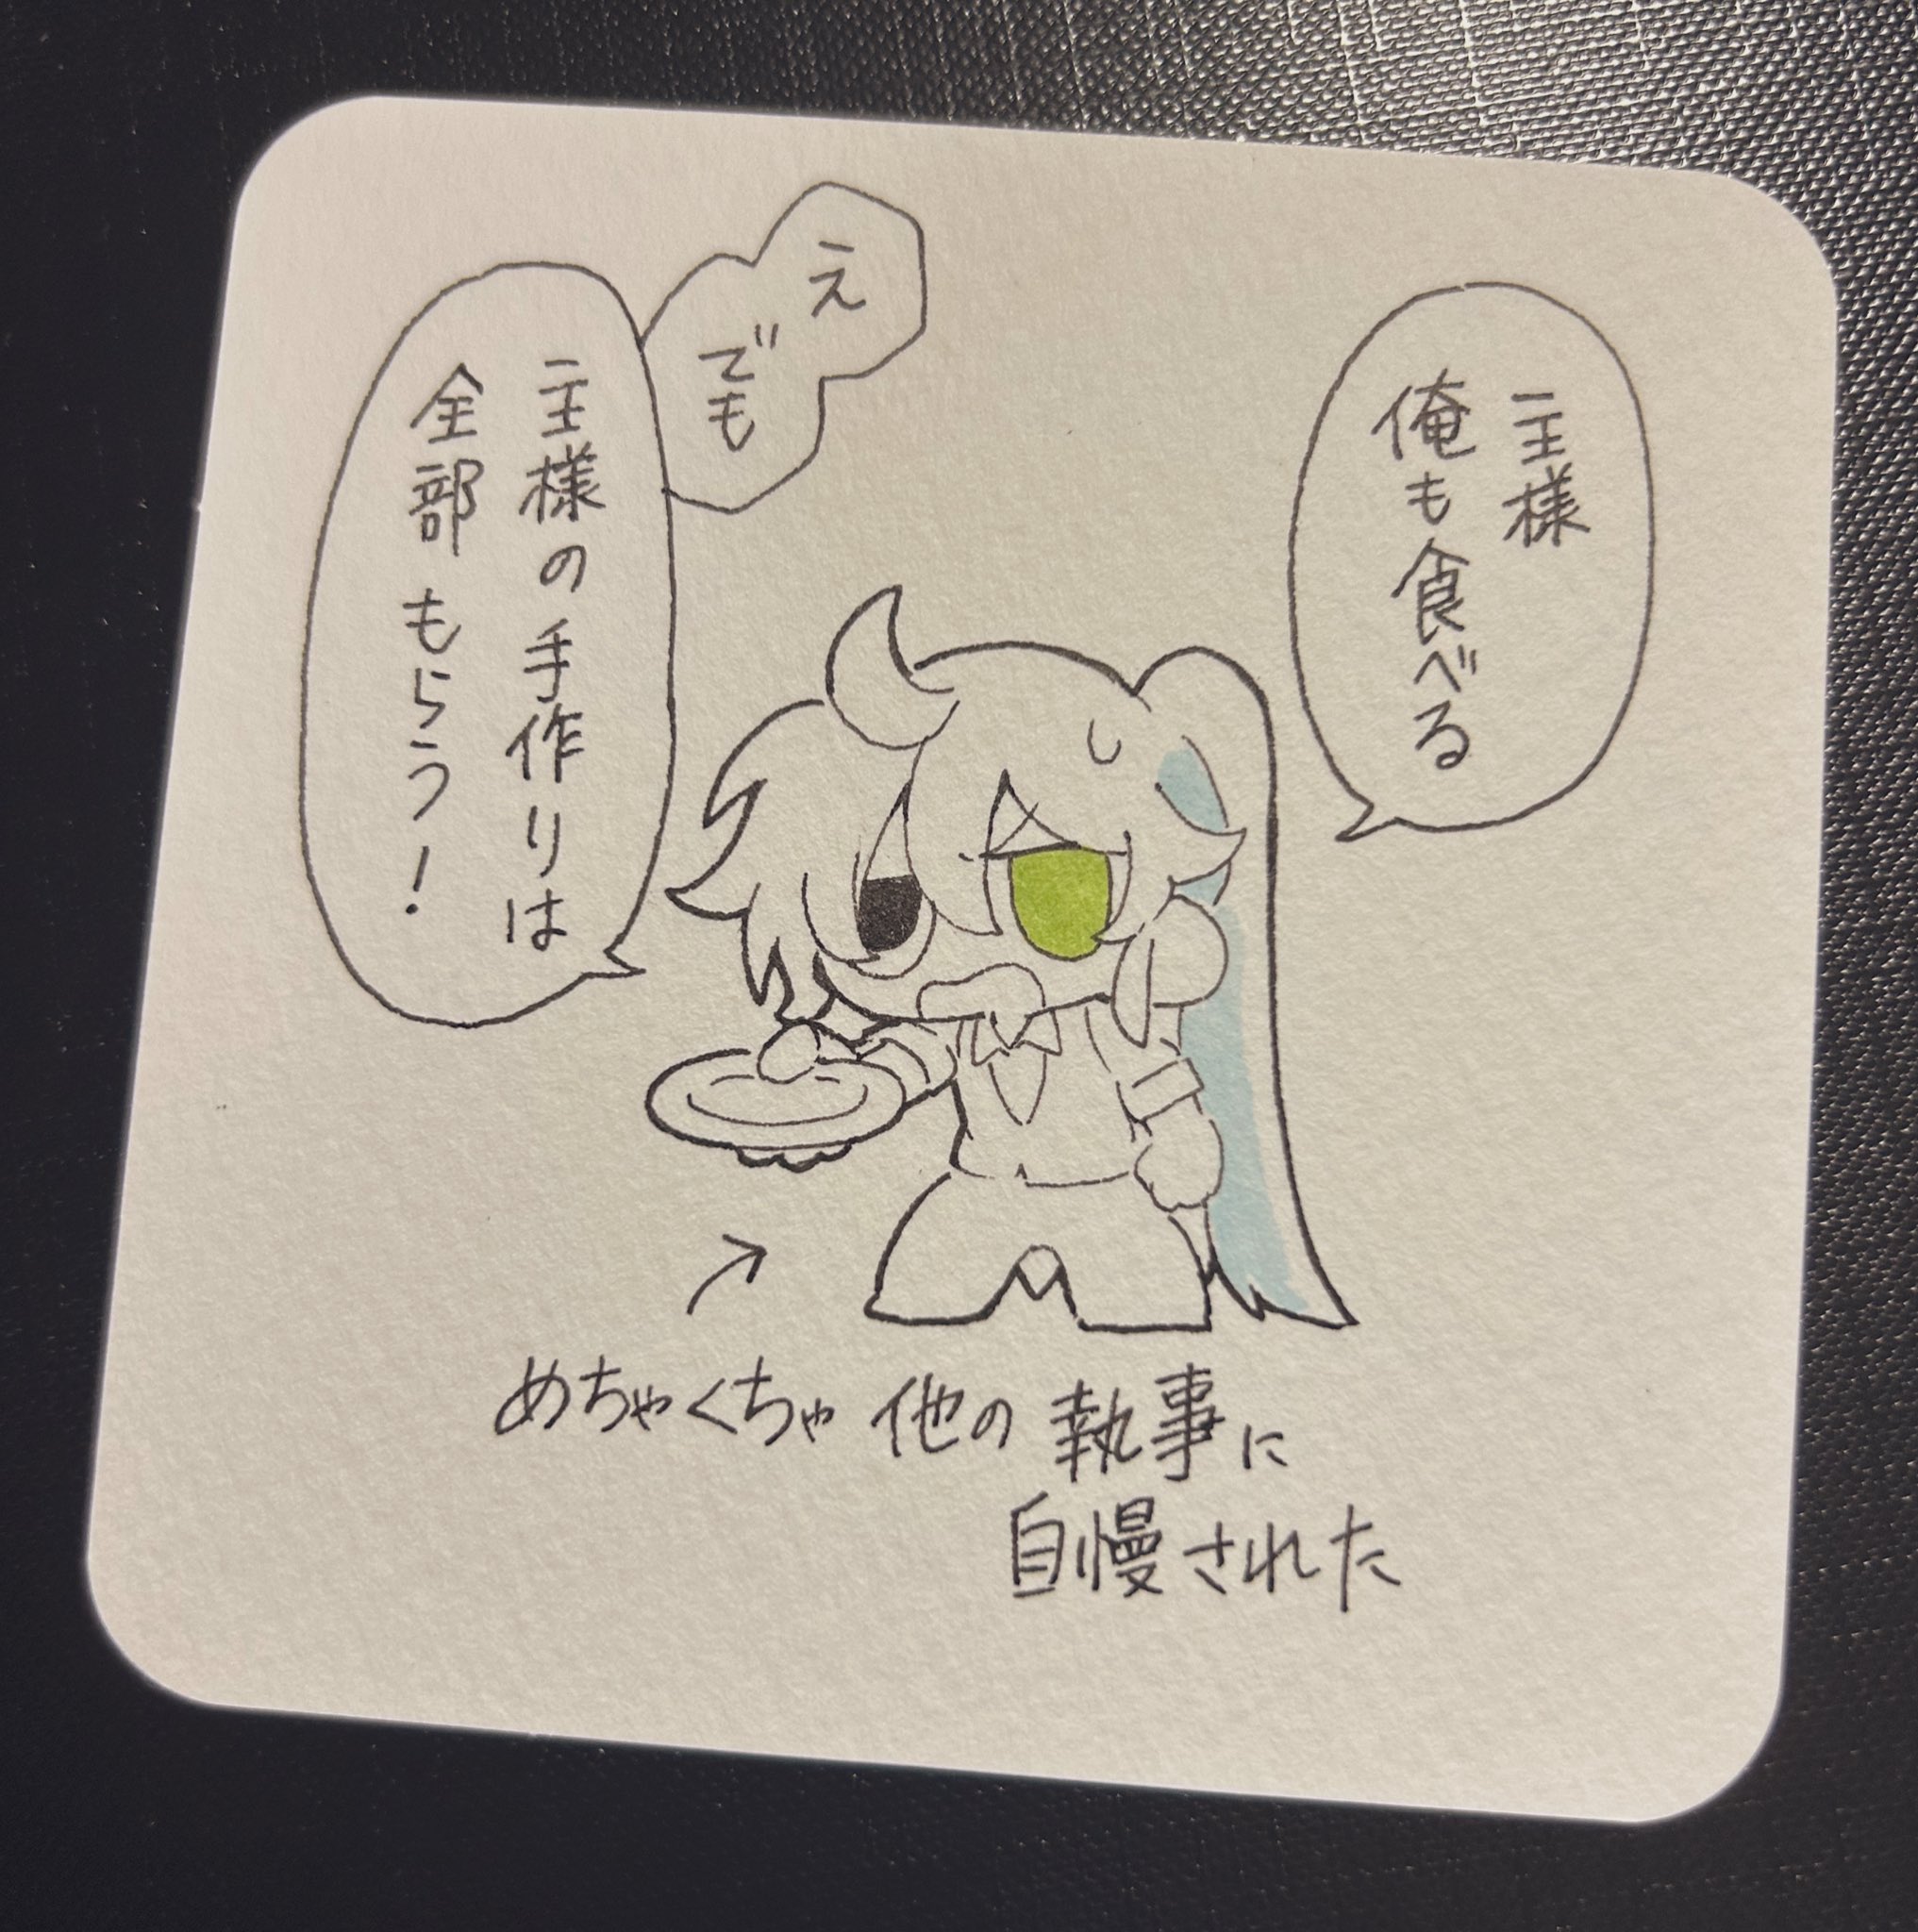 主様
俺も食べる
え
でも
主様の手作りは
全部もらう!
めちゃくちゃ他の執事に
自慢された